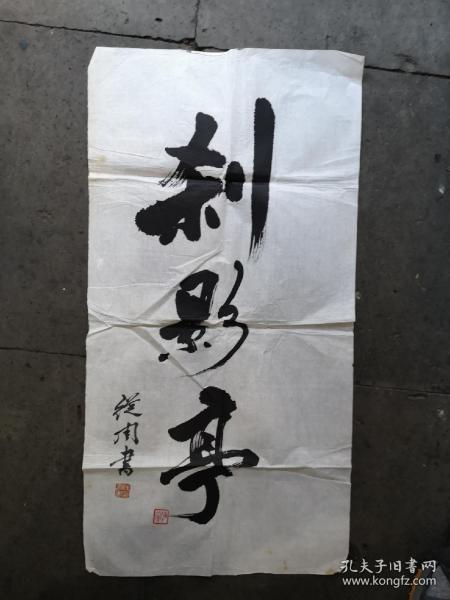 刹影亭
從周書
孔夫子旧书网
www.kongfz.com